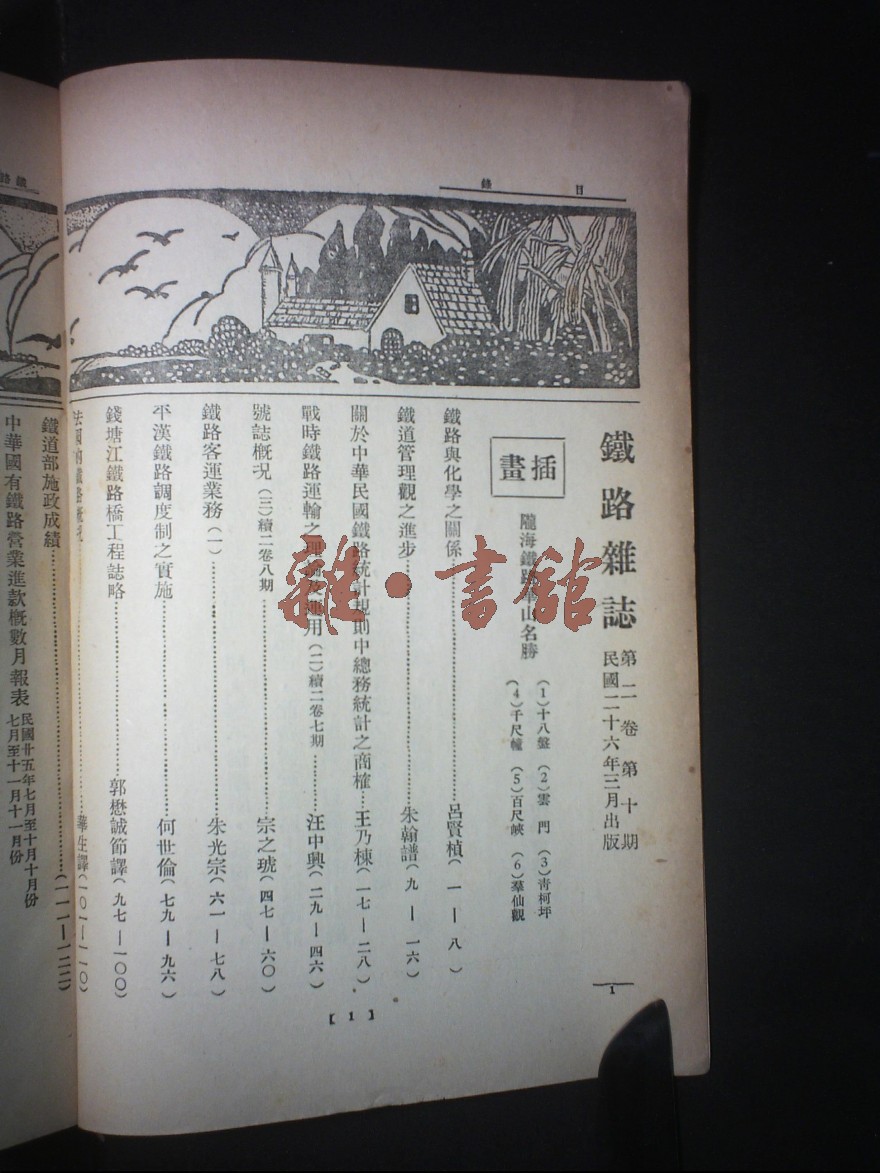 目錄
鐵路雜誌 第二卷第十期
民國二十六年三月出版
插畫
隴海鐵路華山名勝
(1)十八盤 (2)雲門 (3)青柯坪
(4)千尺幢 (5)百尺峽 (6)羣仙觀
鐵路與化學之關係……呂賢楨(一—八)
鐵道管理觀之進步……朱翰譜(九—一六)
關於中華民國鐵路統計規則中總務統計之商榷……王乃棟(一七—二八)
戰時鐵路運輸之理論及運用(二)續二卷七期……汪中興(二九—四六)
號誌概況(三)續二卷八期……宗之琥(四七—六〇)
鐵路客運業務(一)……朱光宗(六一—七八)
平漢鐵路調度制之實施……何世倫(七九—九六)
錢塘江鐵路橋工程誌略……郭懋誠節譯(九七—一〇〇)
法國的鐵路概況……華生譯(一〇一—一一〇)
鐵道部施政成績……(一一一—一二二)
中華國有鐵路營業進款概數月報表 民國廿五年七月至十月十月份
七月至十一月十一月份
【1】
1
雜·書館
鐵路